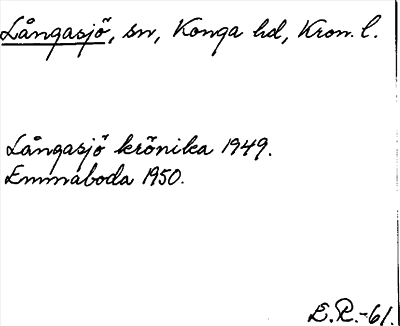 Långasjö, sn, Konga hd, Kron. l.
Långasjö krönika 1949.
Emmaboda 1950.
E.R.-61.